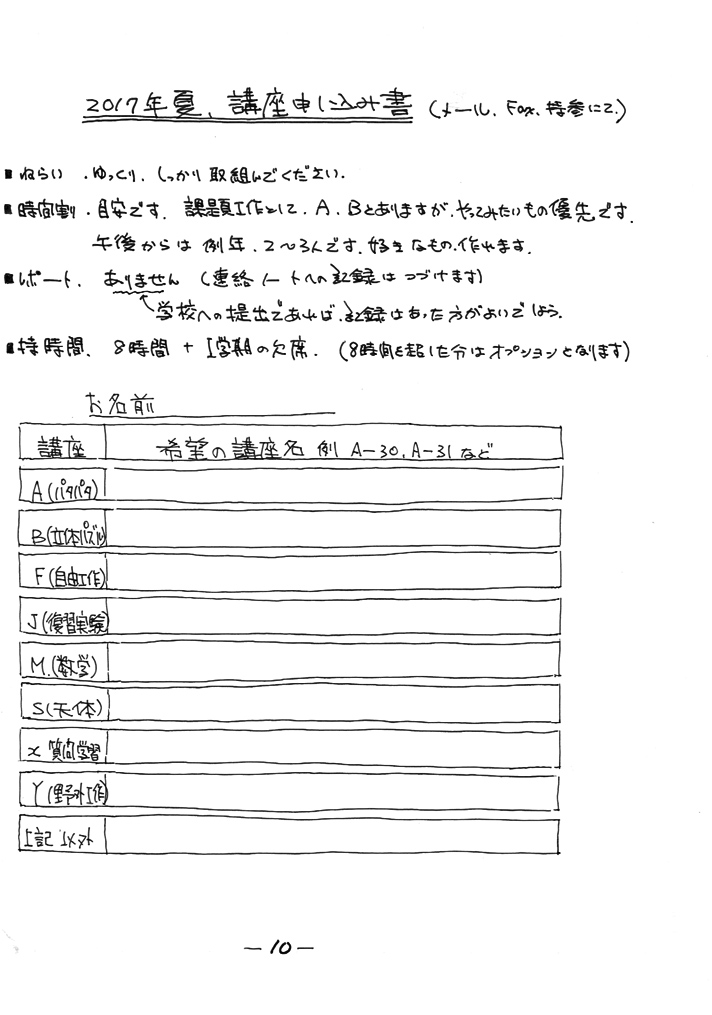 2017年夏、講座申し込み書 (メール、Fax、持参にて)
■ねらい .ゆっくり、しっかり取組んでください.
■時間割 .目安です. 課題工作として、A、Bとありますが、やってみたいもの優先です.
午後からは例年、2〜3人です.好きなもの.作れます.
■レポート、ありません (連絡ノートへの記録はつづけます)
学校への提出であれば、記録はあった方がよいでしょう.
■持時間、8時間 + 1学期の欠席. (8時間を超した分はオプションとなります)
お名前
講座 希望の講座名 例 A-30、A-31など
A(パタパタ)
B(立体パズル)
F(自由工作)
J(復習実験)
M.(数学)
S(天体)
x 質問学習
Y(野外工作)
上記以外
-10-